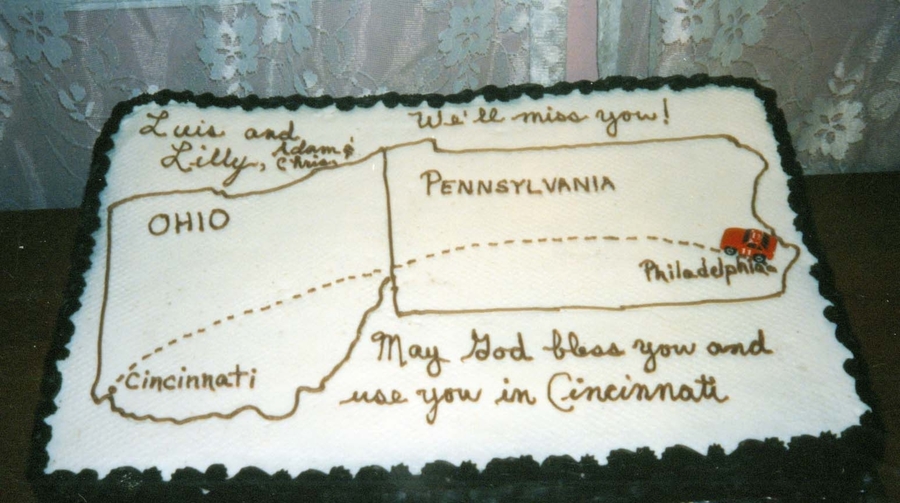 Luis and
Lilly, Adam &
Chris
We'll miss you!
PENNSYLVANIA
OHIO
Philadelphia
Cincinnati
May God bless you and
use you in Cincinnati